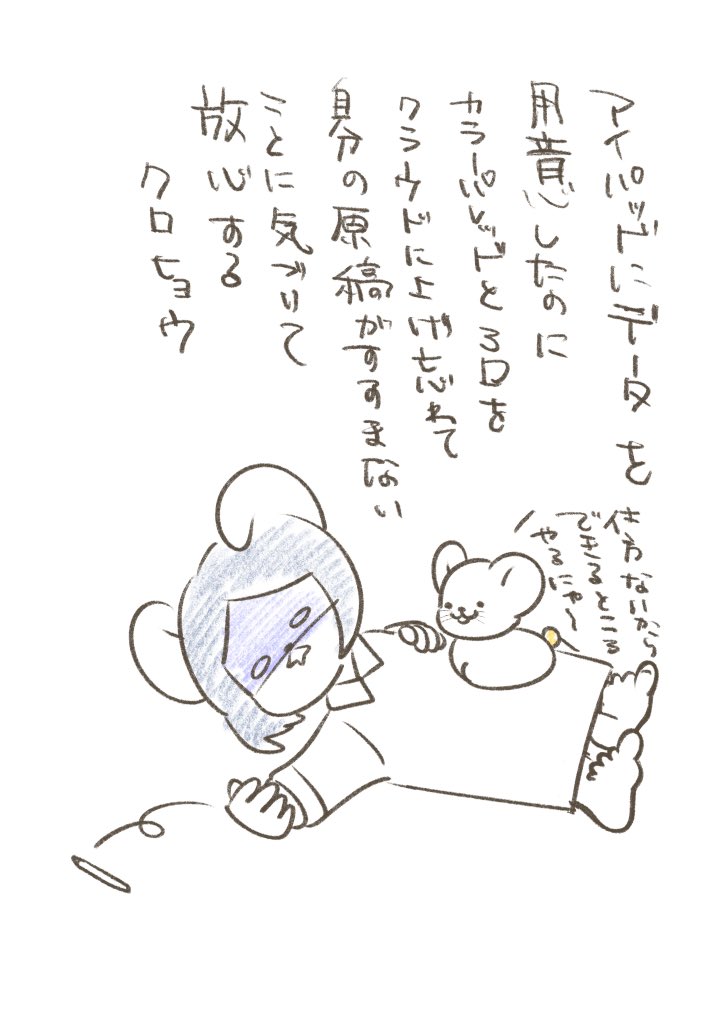 アイパッドにデータを
用意したのに
カラーパレッドとろ口を
クラウドに上げ忘れて
自分の原稿がすすまない
ことに気づいて
放心する
クロヒョウ
仕方ないから
できるところ
やるにゃ〜